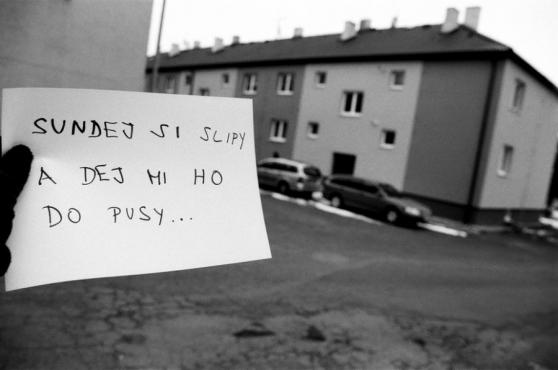 SUNDEJ SI SLIPY
A DEJ MI HO
DO PUSY...